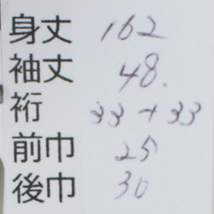 身丈 162
袖丈 48.
裄 33+33
前巾 25
後巾 30